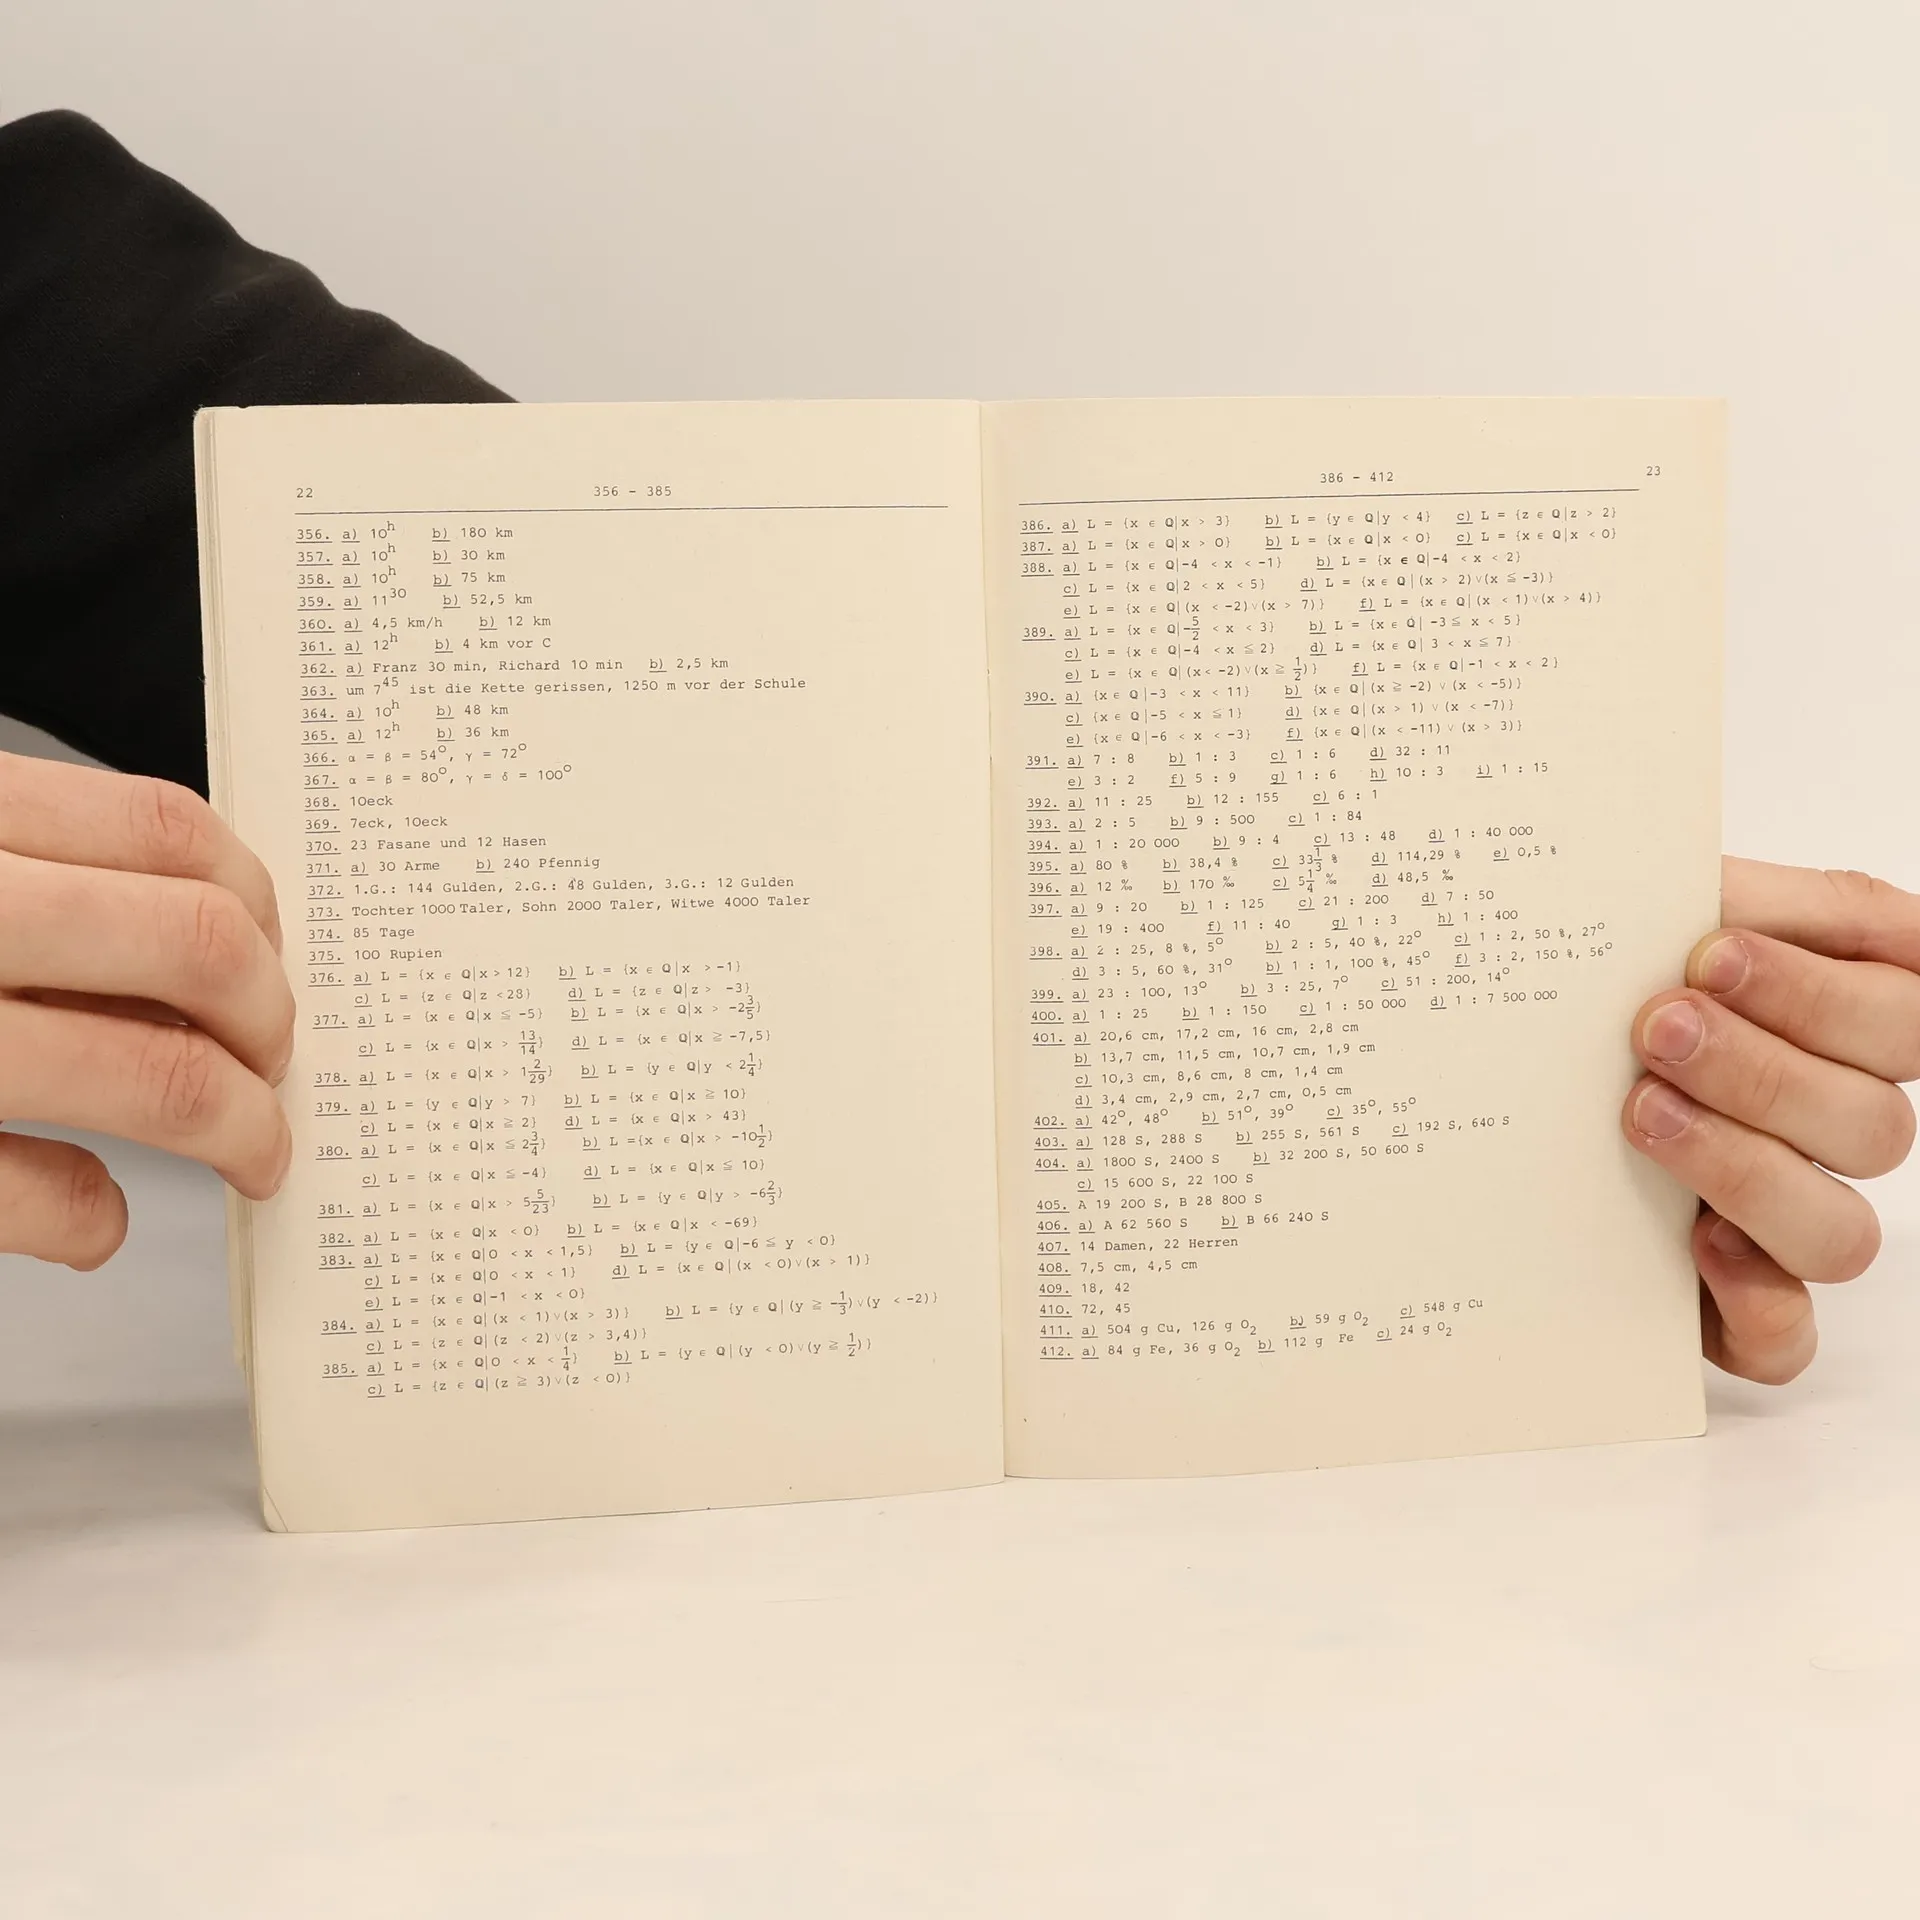 22
356 - 385
356. a) 10ʰ b) 180 km
357. a) 10ʰ b) 30 km
358. a) 10ʰ b) 75 km
359. a) 11³⁰ b) 52,5 km
360. a) 4,5 km/h b) 12 km
361. a) 12ʰ b) 4 km vor C
362. a) Franz 30 min, Richard 10 min b) 2,5 km
363. um 7⁴⁵ ist die Kette gerissen, 1250 m vor der Schule
364. a) 10ʰ b) 48 km
365. a) 12ʰ b) 36 km
366. α = β = 54°, γ = 72°
367. α = β = 80°, γ = δ = 100°
368. 10eck
369. 7eck, 10eck
370. 23 Fasane und 12 Hasen
371. a) 30 Arme b) 240 Pfennig
372. 1.G.: 144 Gulden, 2.G.: 48 Gulden, 3.G.: 12 Gulden
373. Tochter 1000 Taler, Sohn 2000 Taler, Witwe 4000 Taler
374. 85 Tage
375. 100 Rupien
376. a) L = {x ∈ Q|x > 12} b) L = {x ∈ Q|x > -1}
c) L = {z ∈ Q|z < 28} d) L = {z ∈ Q|z > -3}
377. a) L = {x ∈ Q|x ≦ -5} b) L = {x ∈ Q|x > -2 3/5}
c) L = {x ∈ Q|x > 13/14} d) L = {x ∈ Q|x ≧ -7,5}
378. a) L = {x ∈ Q|x > 1 2/29} b) L = {y ∈ Q|y < 2 1/4}
379. a) L = {y ∈ Q|y > 7} b) L = {x ∈ Q|x ≧ 10}
c) L = {x ∈ Q|x ≧ 2} d) L = {x ∈ Q|x > 43}
380. a) L = {x ∈ Q|x ≦ 2 3/4} b) L = {x ∈ Q|x > -10 1/2}
c) L = {x ∈ Q|x ≦ -4} d) L = {x ∈ Q|x ≦ 10}
381. a) L = {x ∈ Q|x > 5 5/23} b) L = {y ∈ Q|y > -6 2/3}
382. a) L = {x ∈ Q|x < 0} b) L = {x ∈ Q|x < -69}
383. a) L = {x ∈ Q|0 < x < 1,5} b) L = {y ∈ Q|-6 ≦ y < 0}
c) L = {x ∈ Q|0 < x < 1} d) L = {x ∈ Q|(x < 0)∨(x > 1)}
e) L = {x ∈ Q|-1 < x < 0}
384. a) L = {x ∈ Q|(x < 1)∨(x > 3)} b) L = {y ∈ Q|(y ≧ -1/3)∨(y < -2)}
c) L = {z ∈ Q|(z < 2)∨(z > 3,4)}
385. a) L = {x ∈ Q|0 < x < 1/4} b) L = {y ∈ Q|(y < 0)∨(y ≧ 1/2)}
c) L = {z ∈ Q|(z ≧ 3)∨(z < 0)}
386 - 412
23
386. a) L = {x ∈ Q|x > 3} b) L = {y ∈ Q|y < 4} c) L = {z ∈ Q|z > 2}
387. a) L = {x ∈ Q|x > 0} b) L = {x ∈ Q|x < 0} c) L = {x ∈ Q|x < 0}
388. a) L = {x ∈ Q|-4 < x < -1} b) L = {x ∈ Q|-4 < x < 2}
c) L = {x ∈ Q|2 < x < 5} d) L = {x ∈ Q|(x > 2)∨(x ≦ -3)}
e) L = {x ∈ Q|(x < -2)∨(x > 7)} f) L = {x ∈ Q|(x < 1)∨(x > 4)}
389. a) L = {x ∈ Q|-5/2 < x < 3} b) L = {x ∈ Q|-3 ≦ x < 5}
c) L = {x ∈ Q|-4 < x ≦ 2} d) L = {x ∈ Q|3 < x ≦ 7}
e) L = {x ∈ Q|(x < -2)∨(x ≧ 1/2)} f) L = {x ∈ Q|-1 < x < 2}
390. a) {x ∈ Q|-3 < x < 11} b) {x ∈ Q|(x ≧ -2) ∨ (x < -5)}
c) {x ∈ Q|-5 < x ≦ 1} d) {x ∈ Q|(x > 1) ∨ (x < -7)}
e) {x ∈ Q|-6 < x < -3} f) {x ∈ Q|(x < -11) ∨ (x > 3)}
391. a) 7 : 8 b) 1 : 3 c) 1 : 6 d) 32 : 11
e) 3 : 2 f) 5 : 9 g) 1 : 6 h) 10 : 3 i) 1 : 15
392. a) 11 : 25 b) 12 : 155 c) 6 : 1
393. a) 2 : 5 b) 9 : 500 c) 1 : 84
394. a) 1 : 20 000 b) 9 : 4 c) 13 : 48 d) 1 : 40 000
395. a) 80 % b) 38,4 % c) 33 1/3 % d) 114,29 % e) 0,5 %
396. a) 12 ‰ b) 170 ‰ c) 5 1/4 ‰ d) 48,5 ‰
397. a) 9 : 20 b) 1 : 125 c) 21 : 200 d) 7 : 50
e) 19 : 400 f) 11 : 40 g) 1 : 3 h) 1 : 400
398. a) 2 : 25, 8 %, 5° b) 2 : 5, 40 %, 22° c) 1 : 2, 50 %, 27°
d) 3 : 5, 60 %, 31° b) 1 : 1, 100 %, 45° f) 3 : 2, 150 %, 56°
399. a) 23 : 100, 13° b) 3 : 25, 7° c) 51 : 200, 14°
400. a) 1 : 25 b) 1 : 150 c) 1 : 50 000 d) 1 : 7 500 000
401. a) 20,6 cm, 17,2 cm, 16 cm, 2,8 cm
b) 13,7 cm, 11,5 cm, 10,7 cm, 1,9 cm
c) 10,3 cm, 8,6 cm, 8 cm, 1,4 cm
d) 3,4 cm, 2,9 cm, 2,7 cm, 0,5 cm
402. a) 42°, 48° b) 51°, 39° c) 35°, 55°
403. a) 128 S, 288 S b) 255 S, 561 S c) 192 S, 640 S
404. a) 1800 S, 2400 S b) 32 200 S, 50 600 S
c) 15 600 S, 22 100 S
405. A 19 200 S, B 28 800 S
406. a) A 62 560 S b) B 66 240 S
407. 14 Damen, 22 Herren
408. 7,5 cm, 4,5 cm
409. 18, 42
410. 72, 45
411. a) 504 g Cu, 126 g O₂ b) 59 g O₂ c) 548 g Cu
412. a) 84 g Fe, 36 g O₂ b) 112 g Fe c) 24 g O₂